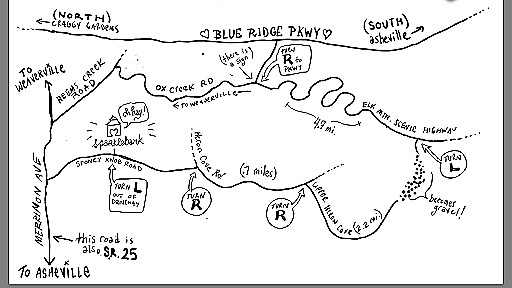 (NORTH)
CRAGGY GARDENS
♡ BLUE RIDGE PKWY ♡
(SOUTH)
asheville
(there is
a sign)
TURN
R to
PKWY
TO
WEAVERVILLE
REEMS CREEK
ROAD
OX CREEK RD
TO WEAVERVILLE
4.7 mi.
ELK MTN. SCENIC HIGHWAY
TURN
L
becomes
gravel!
oh hey!
STONEY KNOB ROAD
TURN L
OUT OF
DRIVEWAY
TURN
R
(.7 miles)
TURN
R
UPPER HERN Cove (2.2 mi)
MERRIMON AVE
this road is
also SR. 25
TO ASHEVILLE